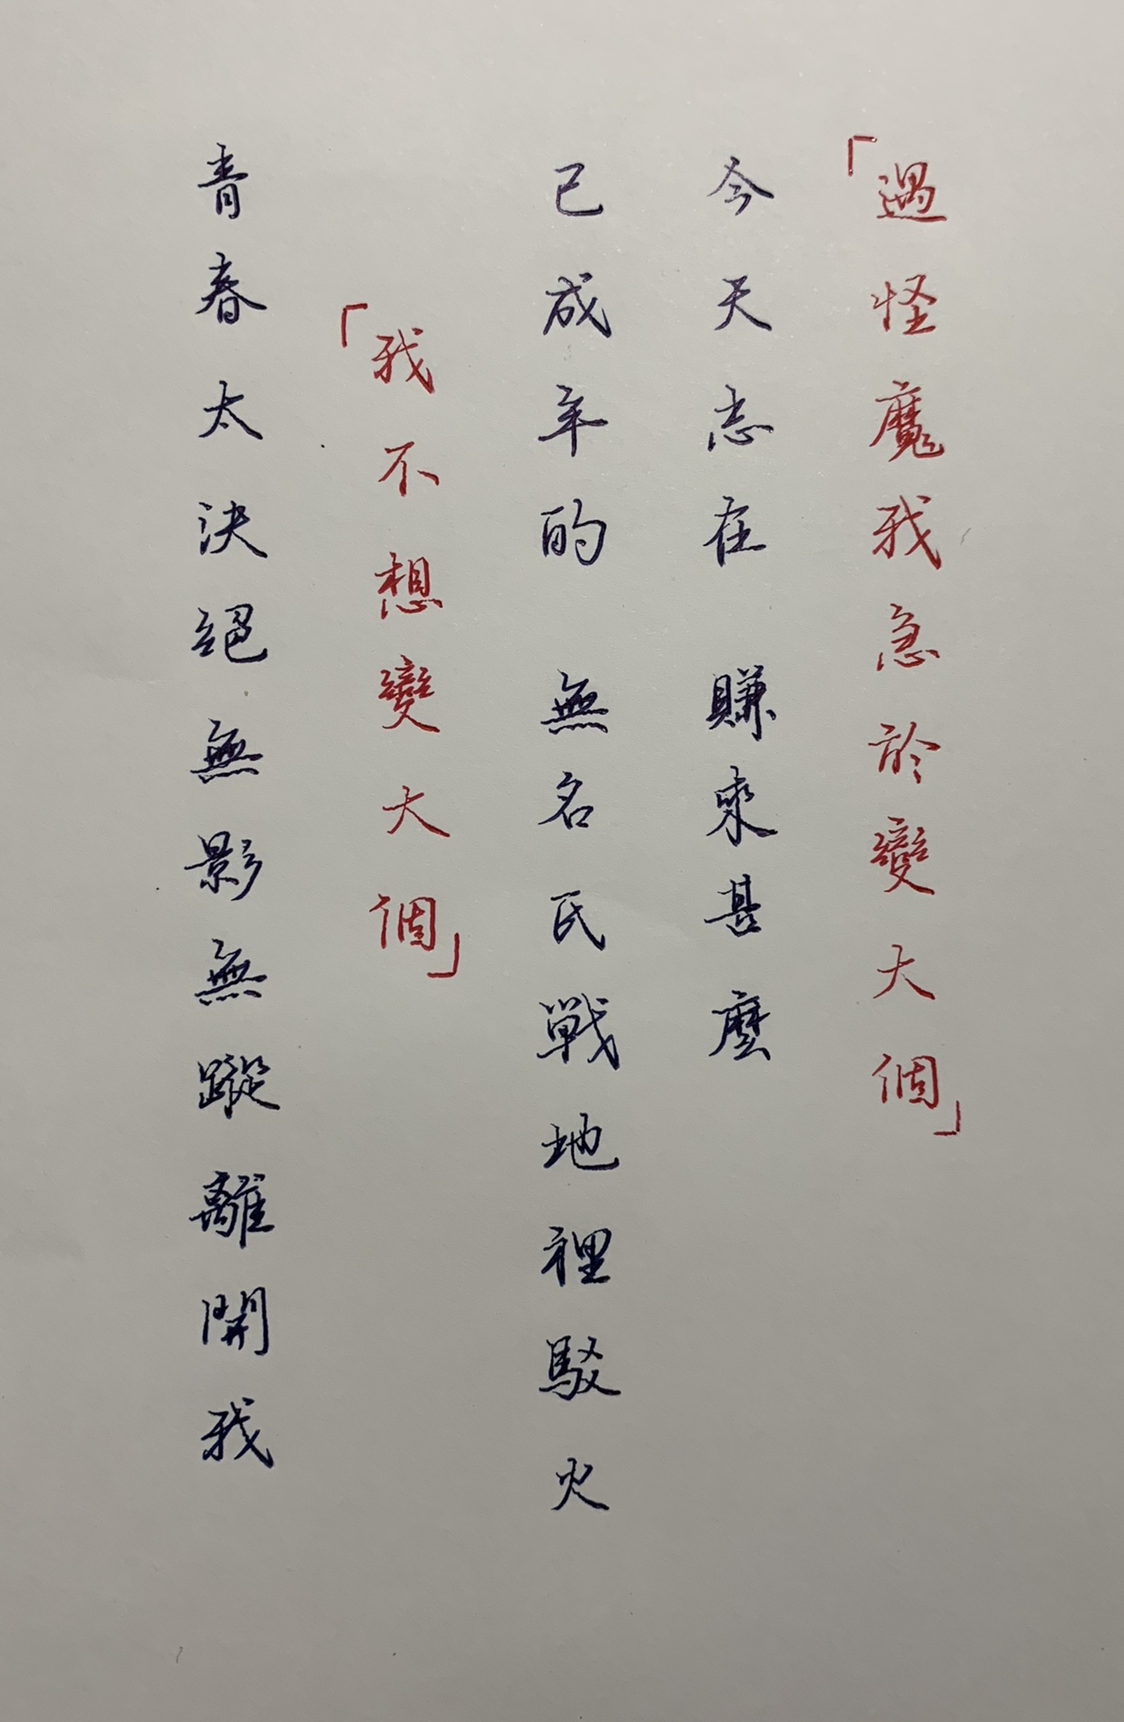 「遇怪魔我急於變大個」
今天志在 賺來甚麼
已成年的 無名氏戰地裡駁火
「我不想變大個」
青春太決絕無影無蹤離開我